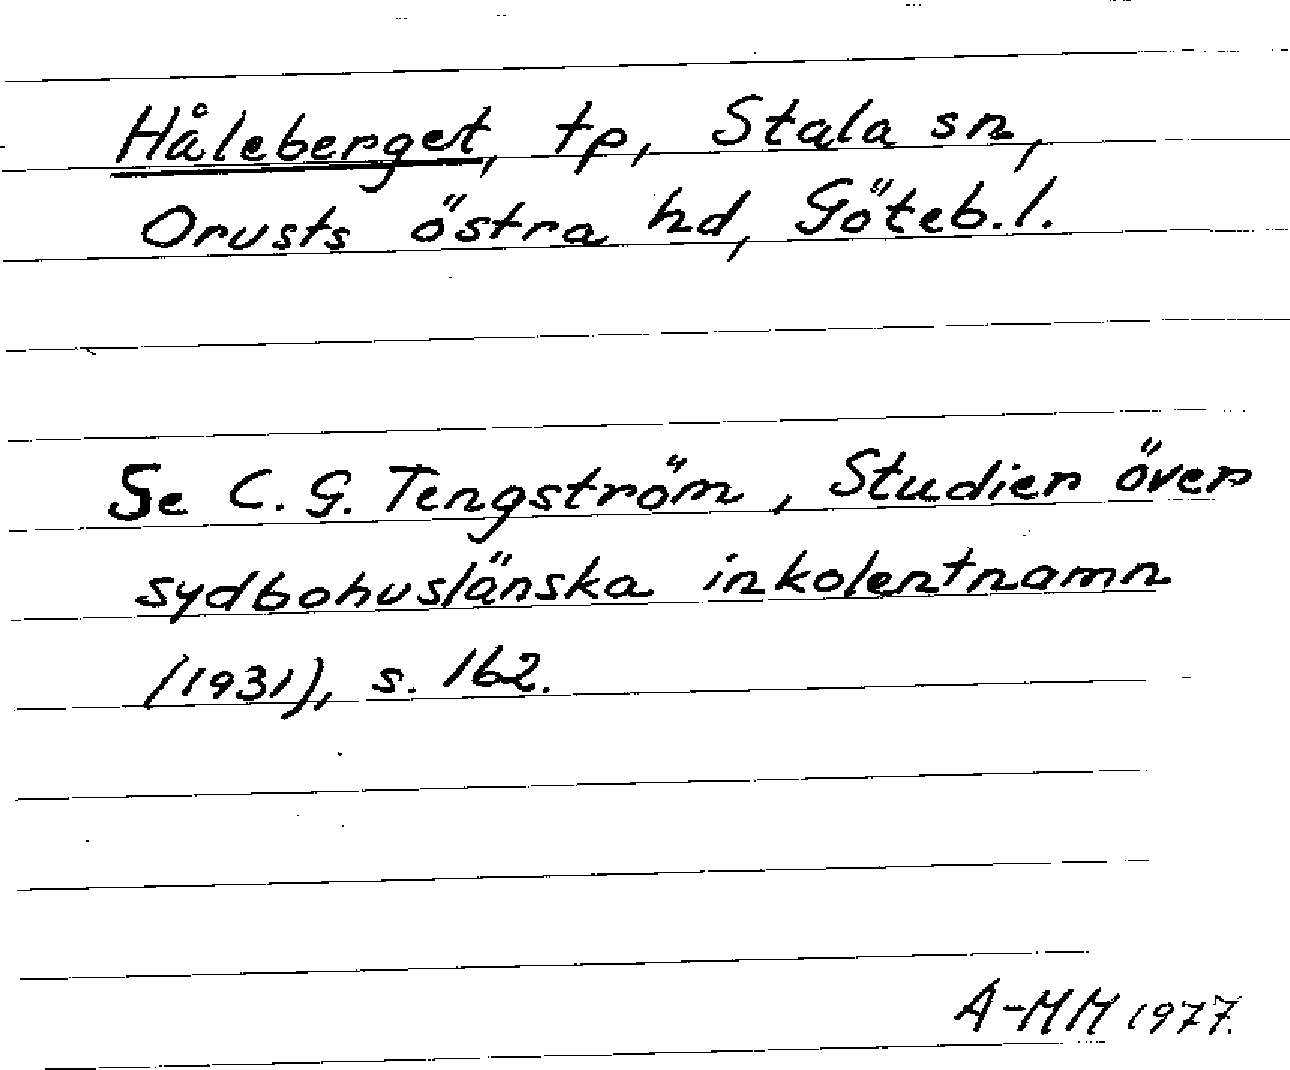 Håleberget, tp, Stala sn,
Orusts östra hd, Göteb.l.
Se C. G. Tengström, Studier över
sydbohuslänska inkolentnamn
(1931), s. 162.
A-MM 1977.